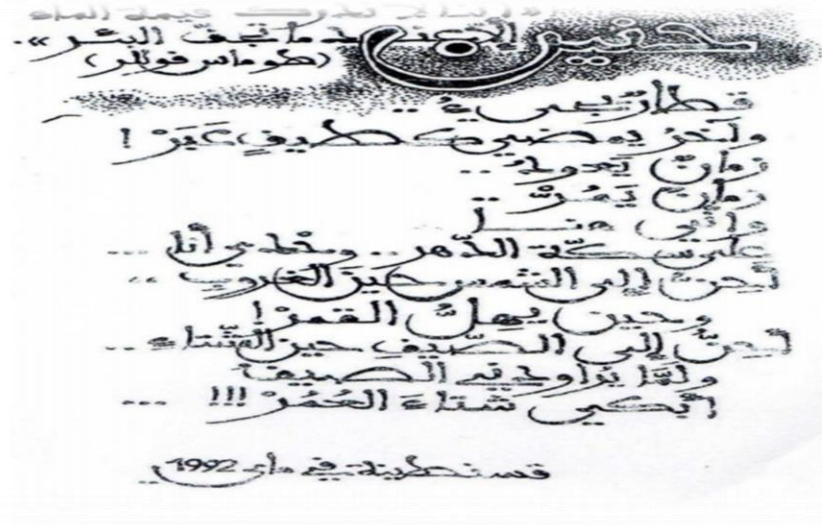 « إننا لا ندرك قيمة الماء
حنين
إلا عندما تجف البئر ».
(طوماس فوللر)
قطارٌ يجيءُ ..
وآخرُ يمضي كطيفٍ عَبَرْ !
زمانٌ يَعودُ ..
زمانٌ يَمُرّْ ..
وإنّي هنا
على سكّة الدّهر .. وحْدي أنا ...
أحِنُّ إلى الشمس حينَ الغروبِ ..
وحين يهِلُّ القمرْ !
أحِنّ إلى الصّيفِ حينَ الشّتاءِ ..
ولمّا يُراودُني الصيفُ
أبكي شتاءَ العُمُرْ !!! ...
قسنطينة في ماي 1992